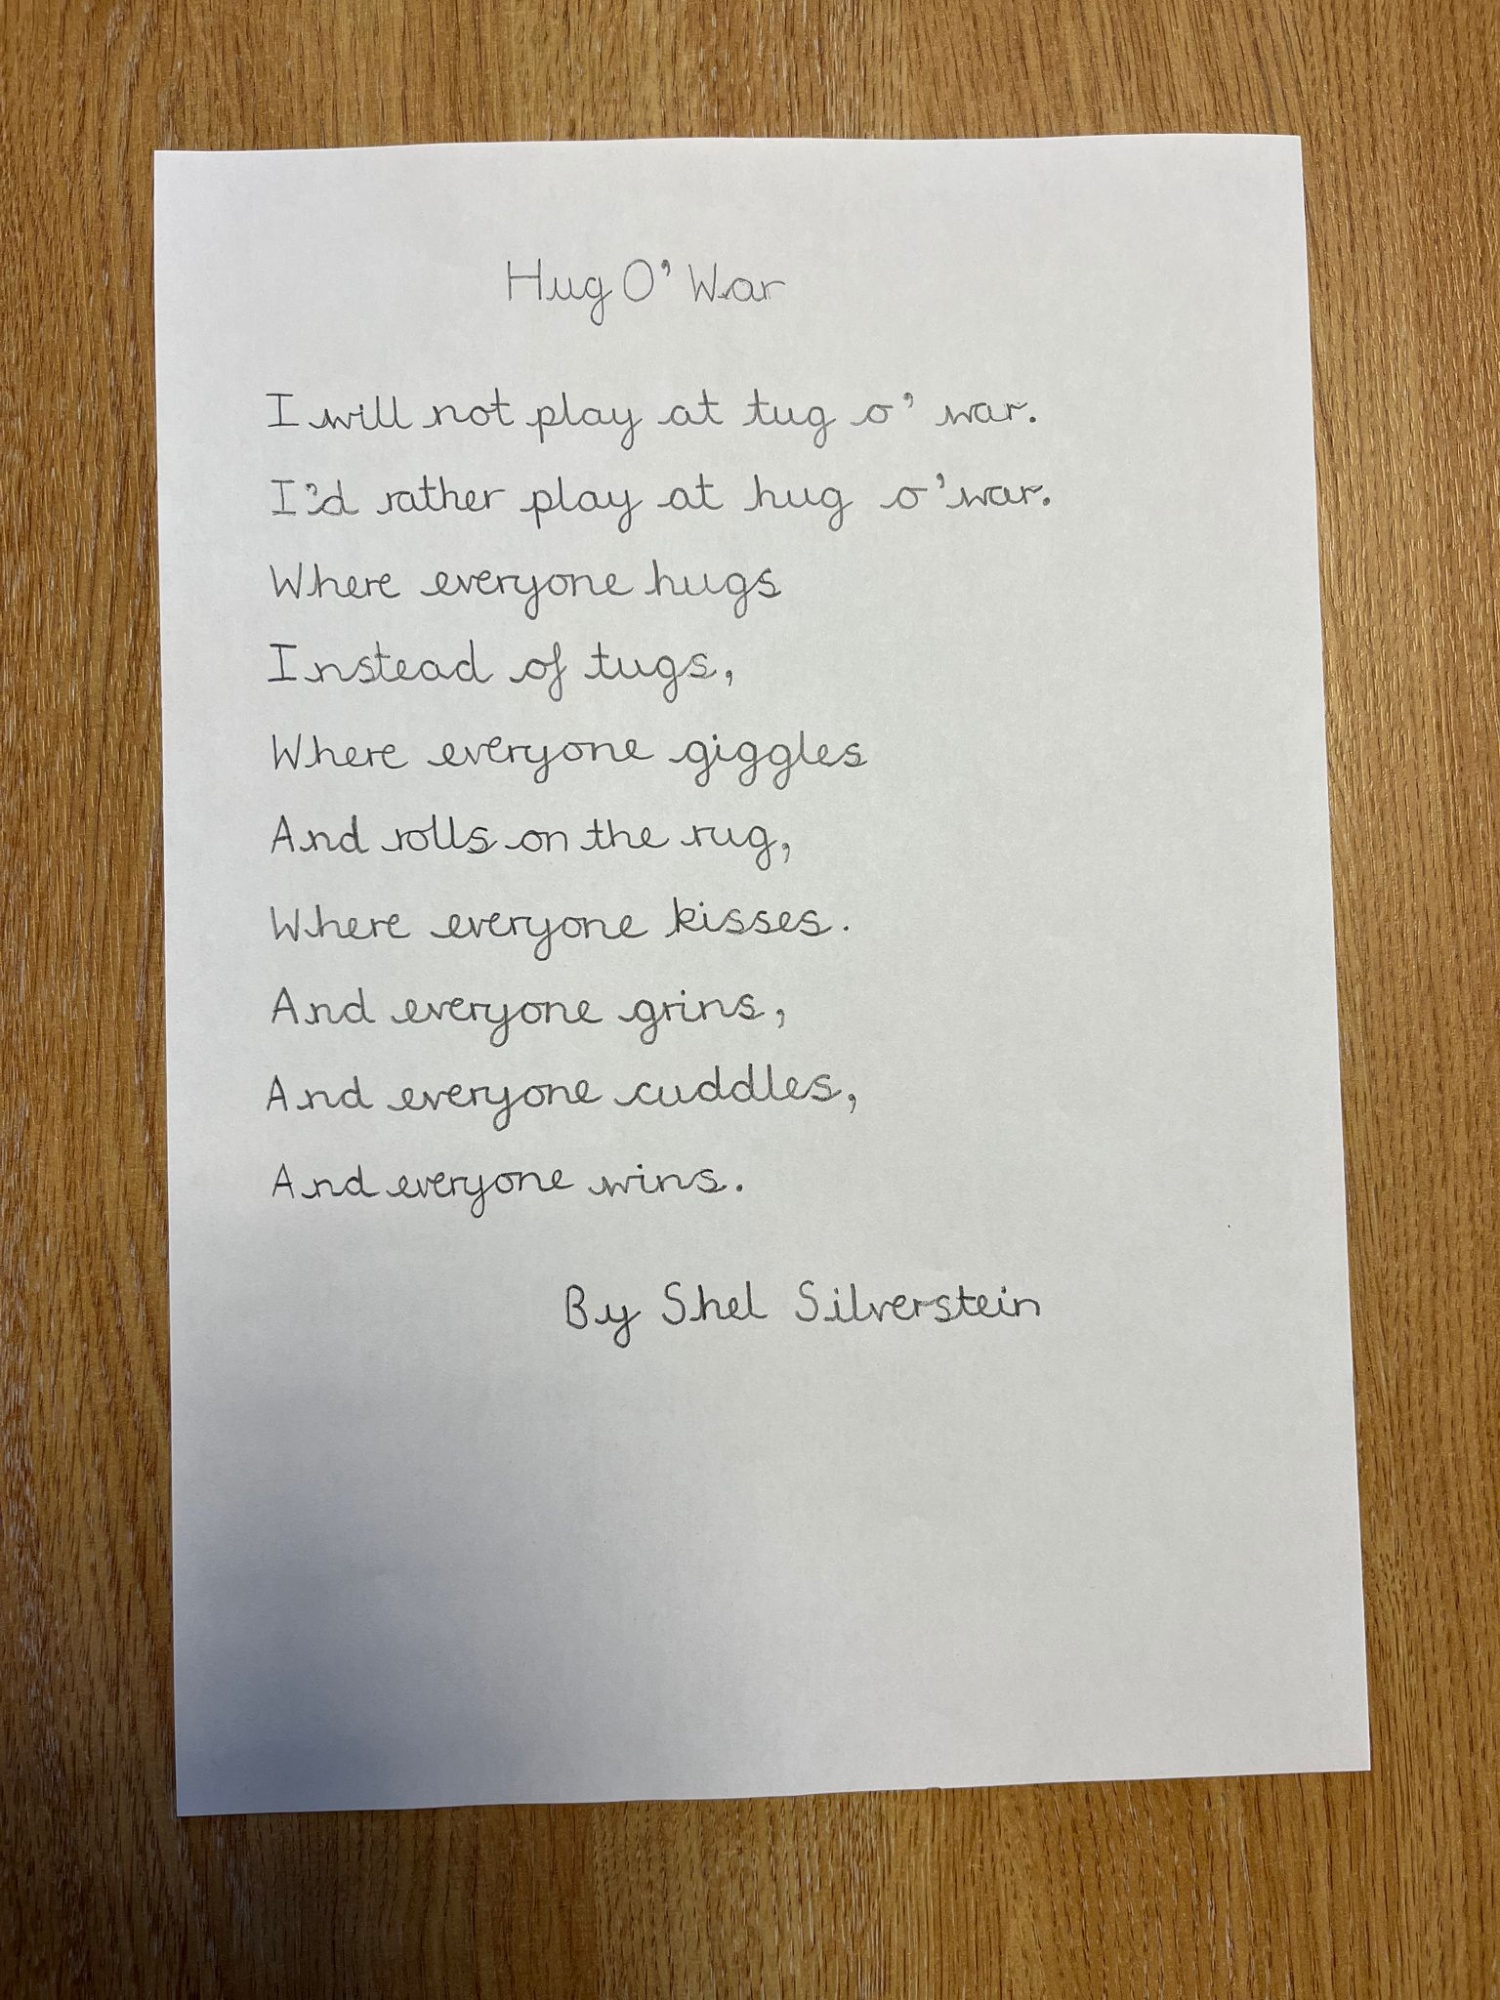 Hug O' War
I will not play at tug o' war.
I'd rather play at hug o' war.
Where everyone hugs
Instead of tugs,
Where everyone giggles
And rolls on the rug,
Where everyone kisses.
And everyone grins,
And everyone cuddles,
And everyone wins.
By Shel Silverstein